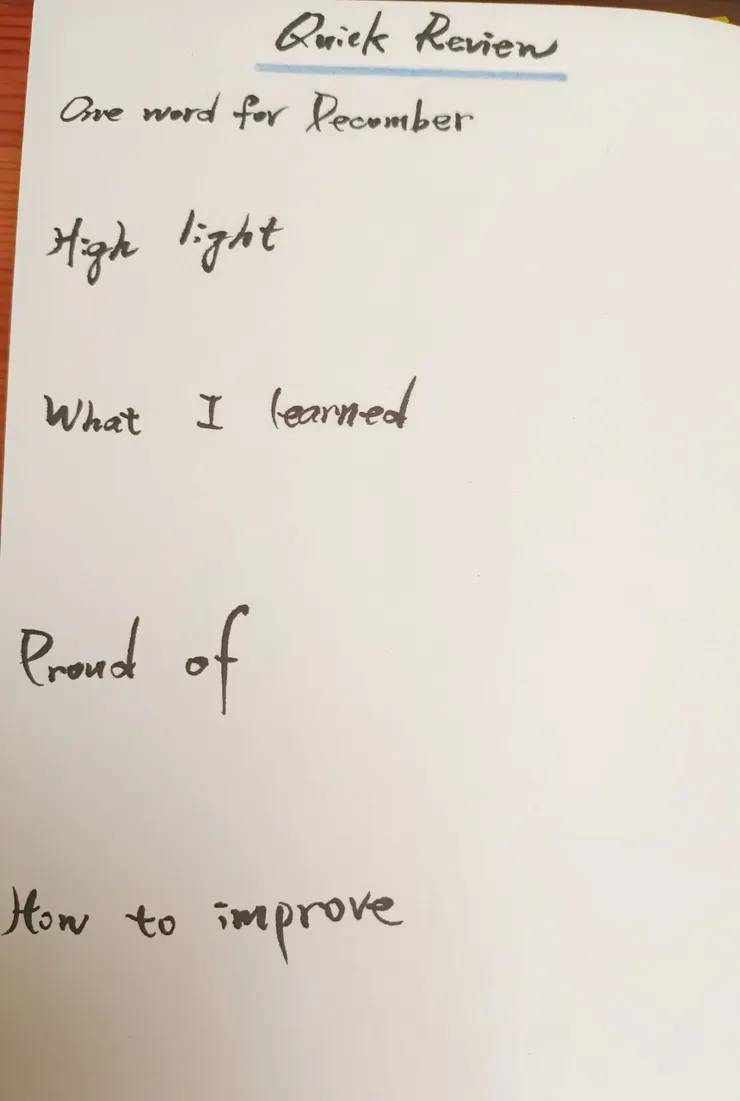 Quick Review
One word for December
High light
What I learned
Proud of
How to improve